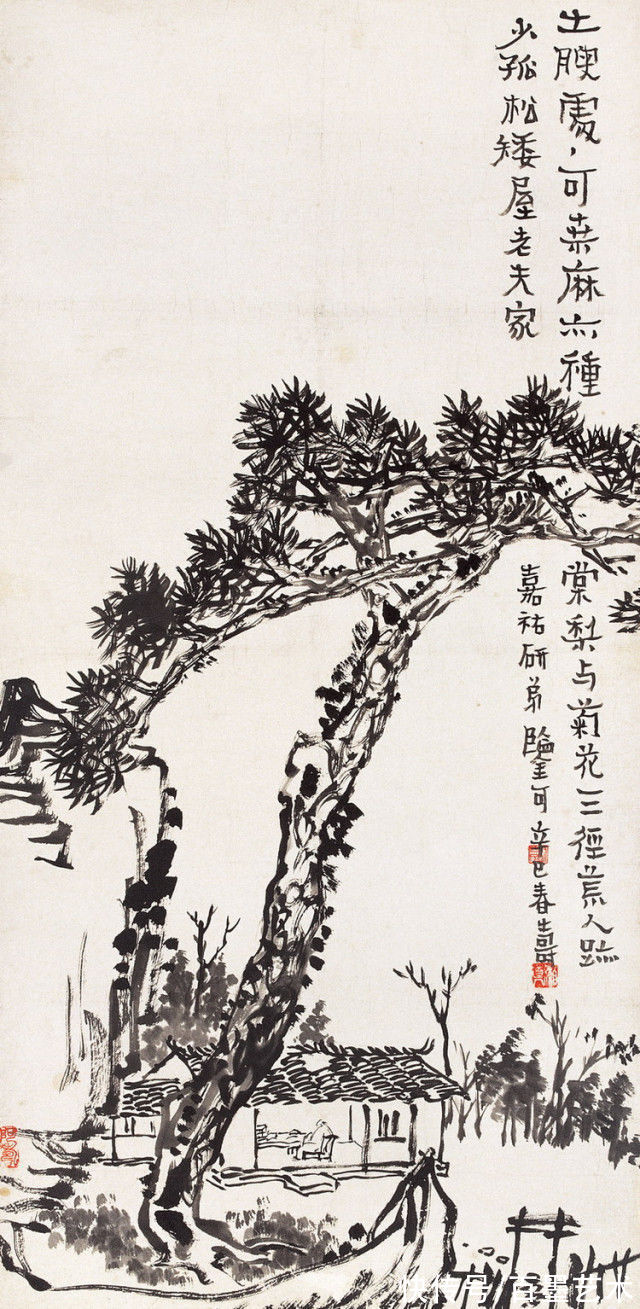 土腴處、可桑麻亦種
棠梨与菊花三徑荒人跡
少孤松矮屋老夫家
嘉祐研弟鑒可辛巳春壽
快传号/艺术